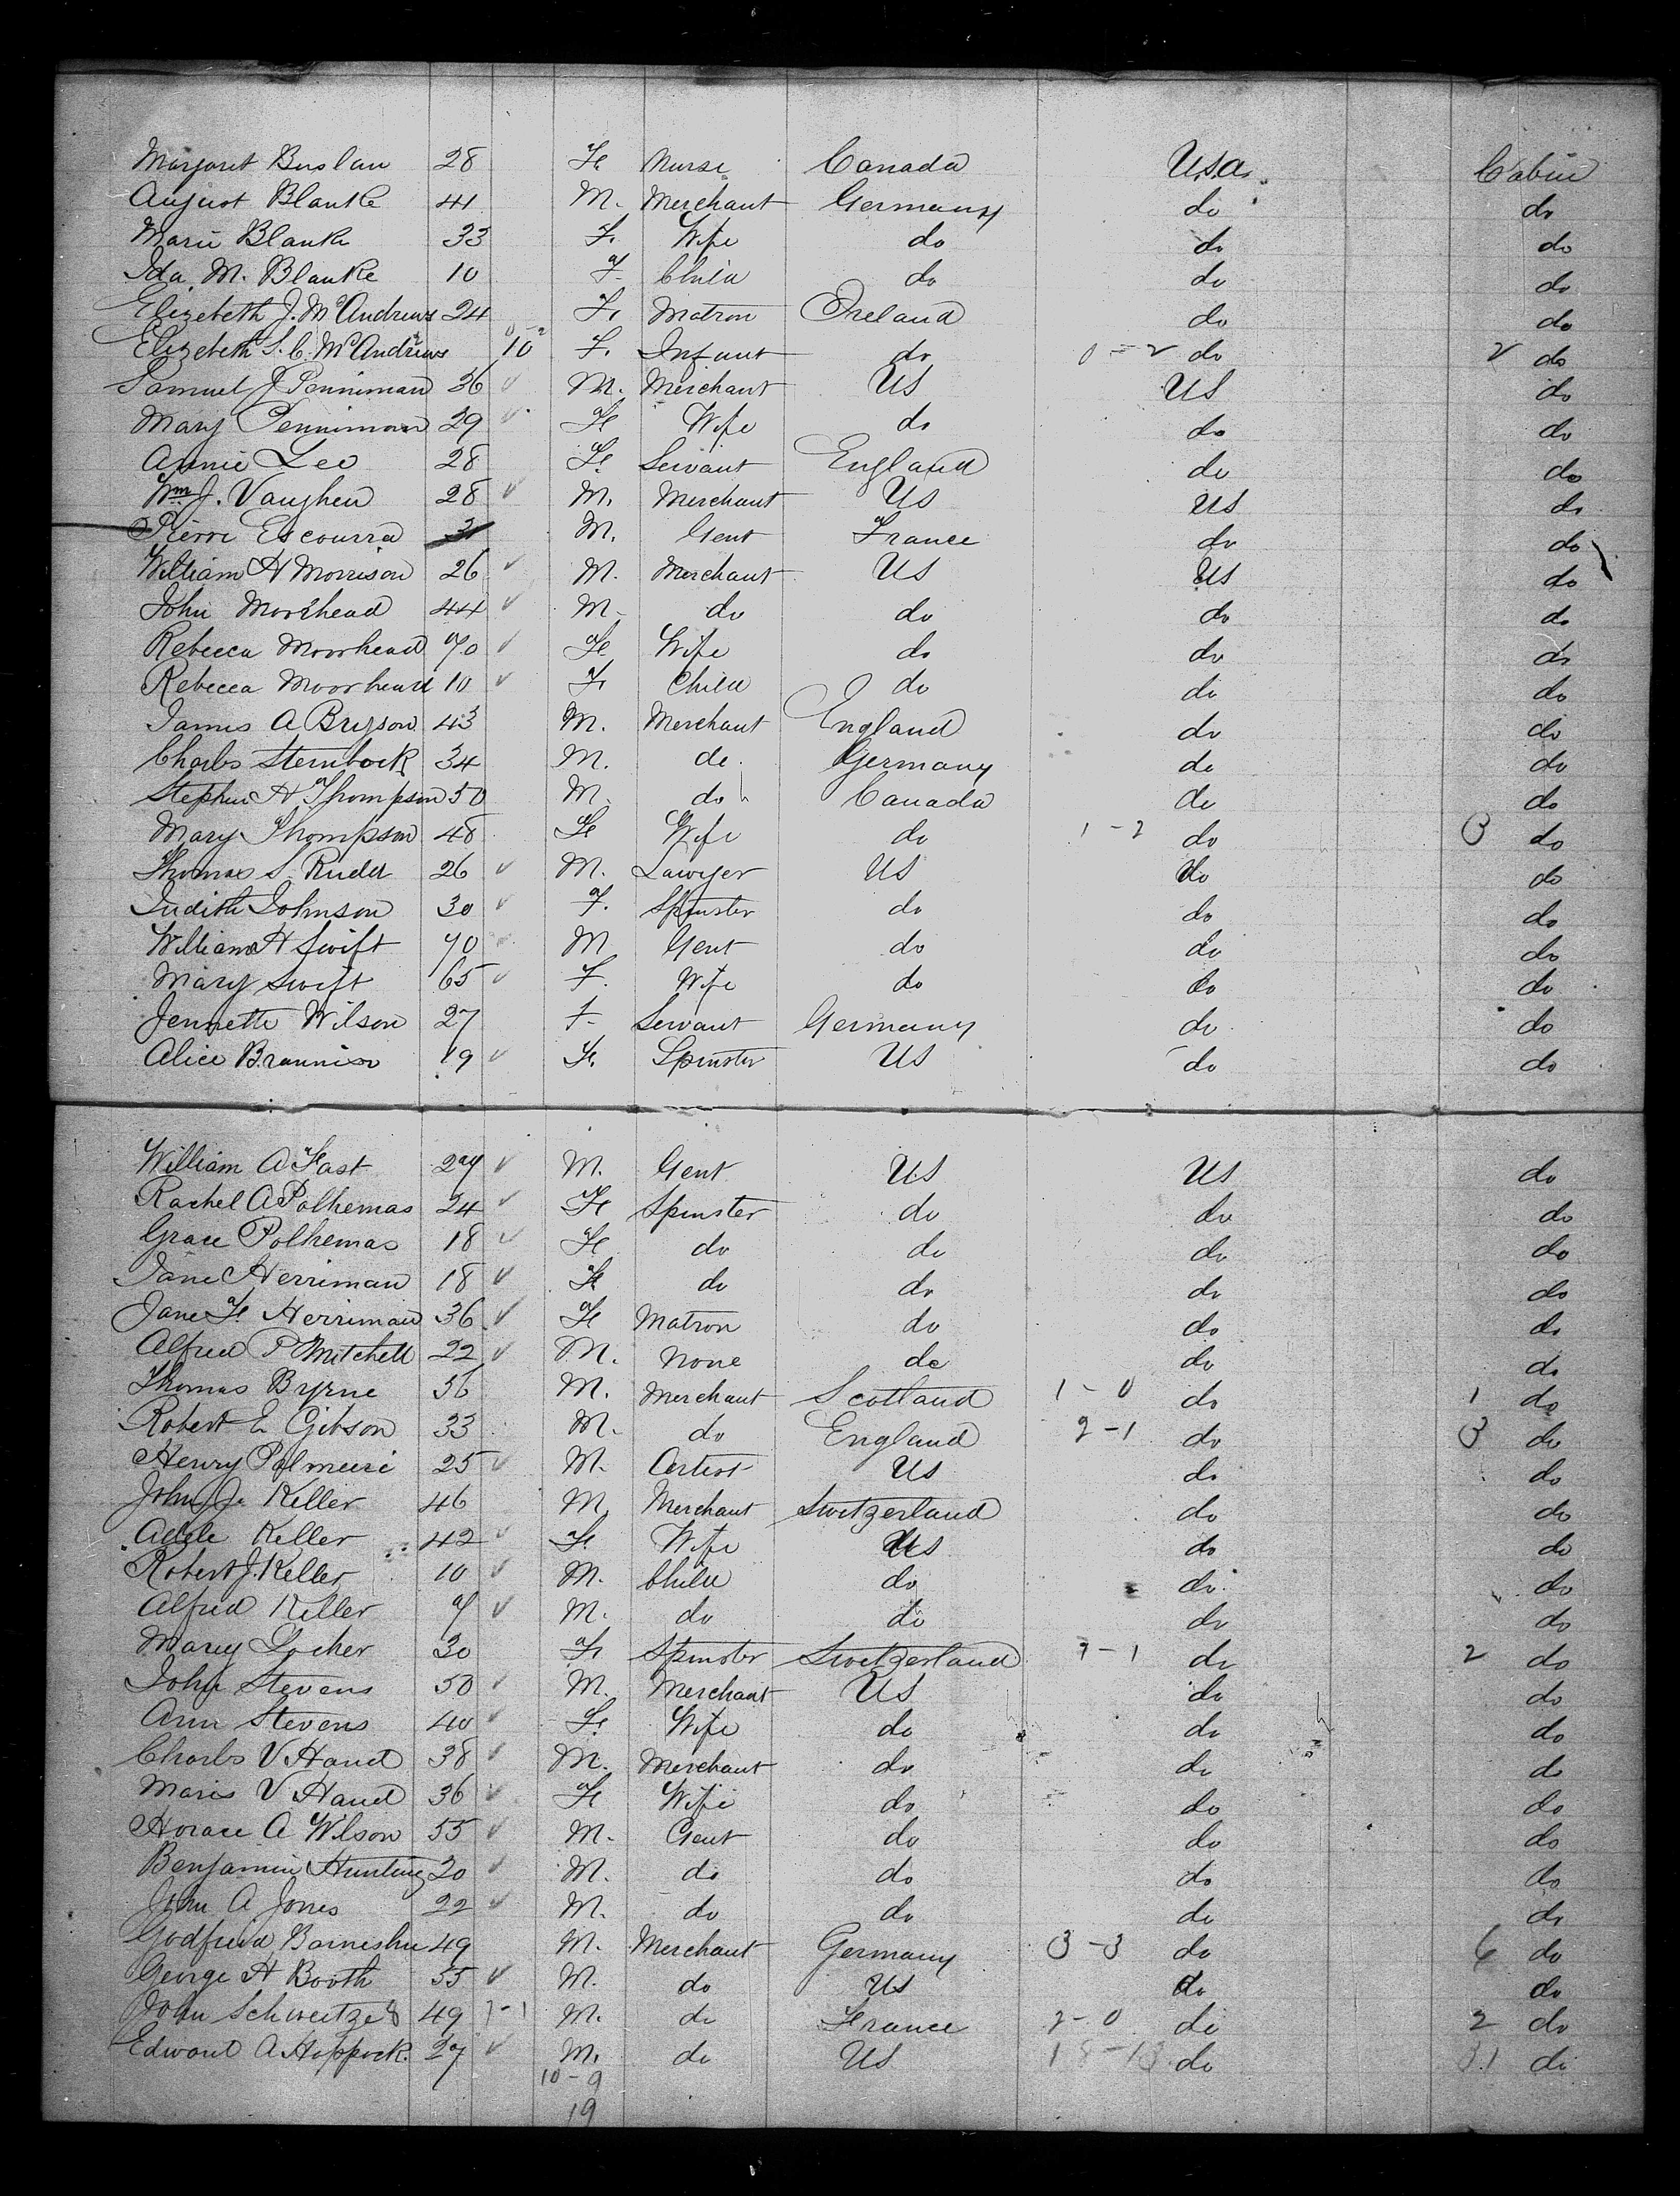 Margaret Buslau 28 Fe Nurse Canada U.S.a. Cabin
August Blanke 41 M. Merchant Germany do do
Marie Blanke 33 F. Wife do do do
Ida M. Blanke 10 F Child do do do
Elizebeth J. McAndrews 24 F. Matron Ireland do do
Elizebeth S. C. McAndrews 10 0-2 F. Infant do 0-2 do 2 do
Samuel J Penniman 36 ✓ M. Merchant US US do
Mary Penniman 29 ✓ Fe Wife do do do
Annie Leo 28 Fe Servant England do do
Wm J. Vaughen 28 ✓ M. Merchant US US do
Pierre Escourra M. Gent France do do
William H Morrison 26 ✓ M. Merchant US US do
John Moorhead 44 ✓ M do do do do
Rebecca Moorhead 40 ✓ Fe Wife do do do
Rebecca Moorhead 10 ✓ F. Child do do do
James A Bryson 43 M. Merchant England do do
Charles Sternbock 34 M. do Germany do do
Stephen H Thompson 50 M. do Canada do do
Mary Thompson 48 Fe Wife do 1-2 do 3 do
Thomas S. Rudd 26 ✓ M. Lawyer US do do
Judith Johnson 30 ✓ F. Spinster do do do
William H Swift 70 M Gent do do do
Mary Swift 65 ✓ F. Wife do do do
Jennette Wilson 27 F Servant Germany do do
Alice Brannison 19 ✓ Fe Spinster US do do
William A Fast 27 ✓ M. Gent US US do
Rachel A Polhemas 24 ✓ Fe Spinster do do do
Grace Polhemas 18 ✓ Fe do do do do
Jane Herriman 18 ✓ Fe do do do do
Jane Fe Herriman 36 ✓ Fe Matron do do do
Alfred P Mitchell 22 ✓ M. None do do do
Thomas Byrne 36 M. Merchant Scotland 1-0 do 1 do
Robert E Gibson 33 M. do England 2-1 do 3 do
Henry Palmeire 25 ✓ M. Artist US do do
John J. Keller 46 M. Merchant Switzerland do do
Adele Keller 42 ✓ Fe Wife US do do
Robert J. Keller 10 ✓ M. Child do do do
Alfred Keller 7 ✓ M. do do do do
Marey Locher 30 Fe Spinster Switzerland 1-1 do 2 do
John Stevens 50 ✓ M. Merchant US do do
Ann Stevens 40 ✓ Fe Wife do do do
Charles V Hand 38 ✓ M. Merchant do do do
Marie V Hand 36 ✓ Fe Wife do do do
Horace A Wilson 55 ✓ M. Gent do do do
Benjamin Hunting 20 ✓ M. do do do do
John A Jones 22 ✓ M. do do do do
Godfreid Barneshee 49 M. Merchant Germany 3-3 do 6 do
George H Booth 55 ✓ M. do US do do
John Schweitzer 49 1-1 M. do France 2-0 do 2 do
Edward A Hoppock 27 ✓ M. do US 18-13 do 31 do
10-9
19